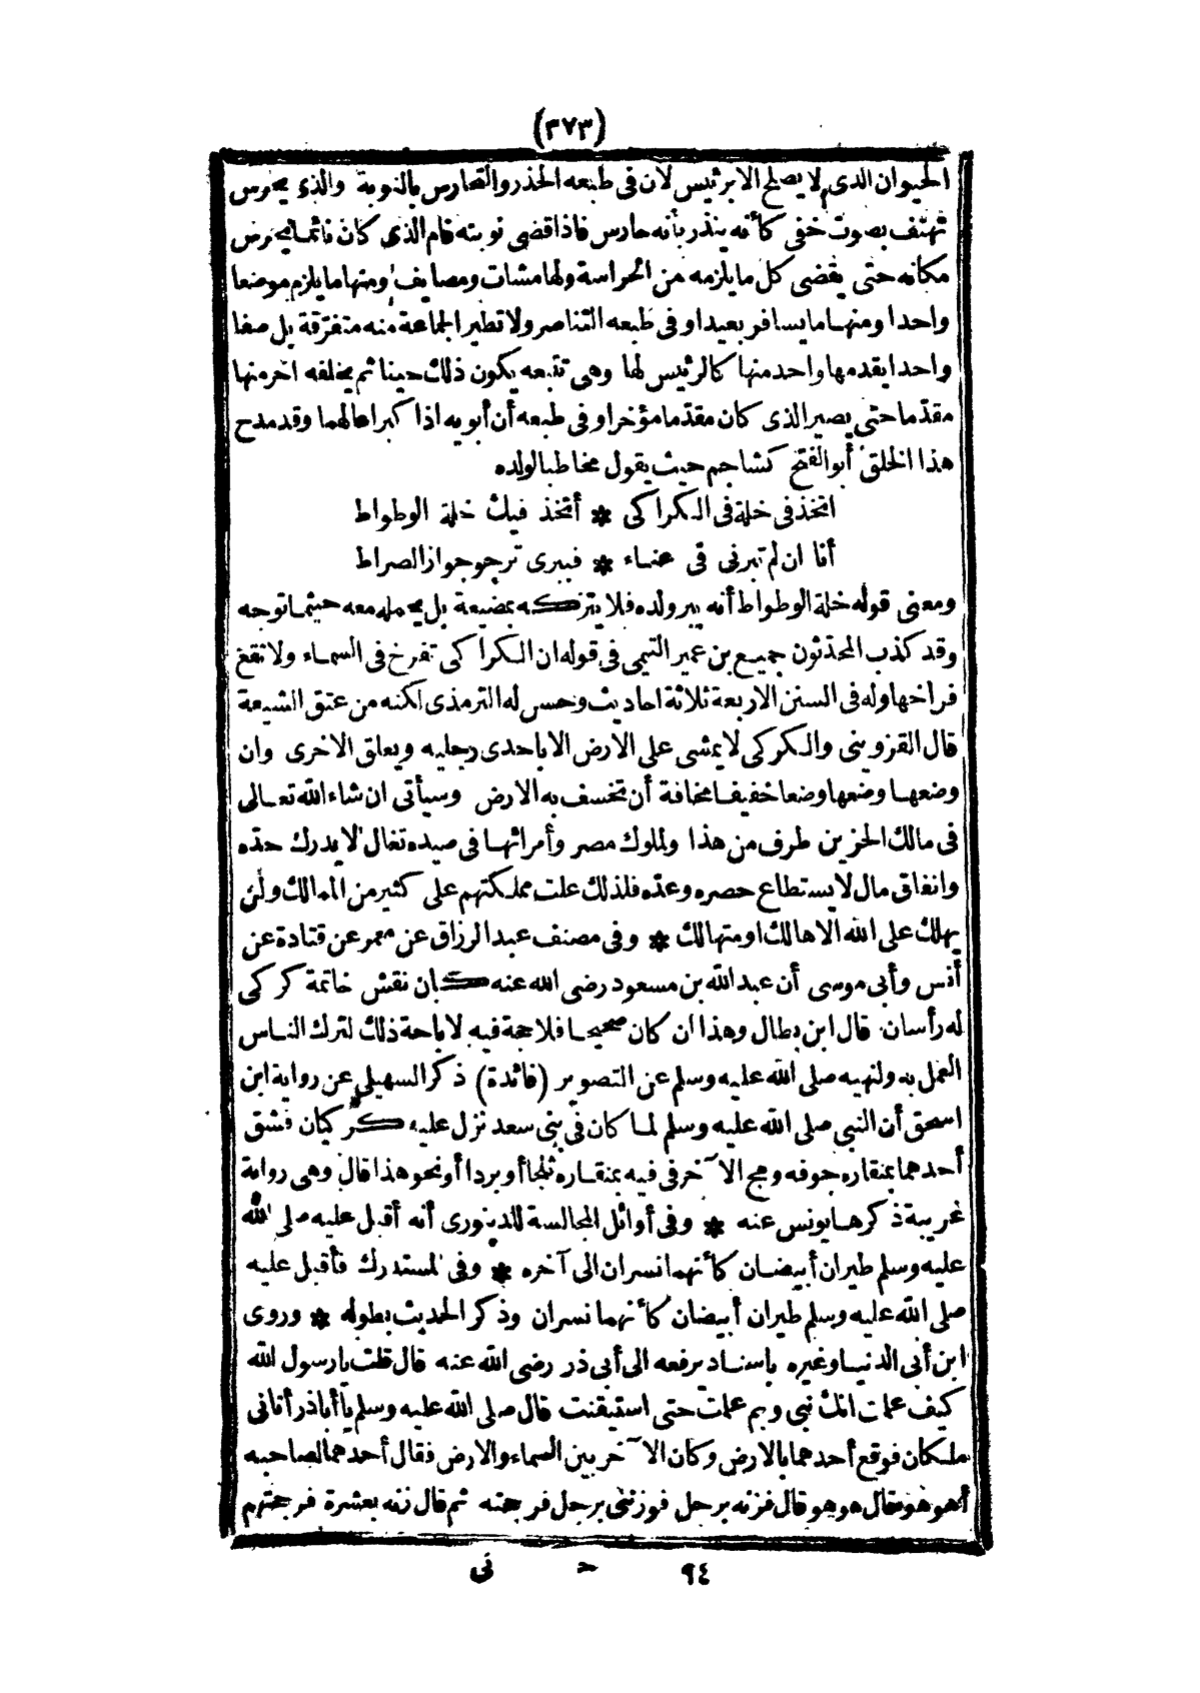 (٣٧٣)
الحيوان الذى لا يصلح الا برئيس لان فى طبعه الحذر والتحارس بالنوبة والذى يحرس
يهتف بصوت خفى كأنه ينذر بأنه حارس فاذا قضى نوبته قام الذى كان نائما يحرس
مكانه حتى يقضى كل ما يلزمه من الحراسة ولها مشات ومصايف ومنها ما يلزم موضعا
واحدا ومنها ما يسافر بعيدا وفى طبعه التناصر ولا تطير الجماعة منه متفرقة بل صفا
واحدا يقدمها واحد منها كالرئيس لها وهى تتبعه يكون ذلك حينا ثم يخلفه آخر منها
مقدّما حتى يصير الذى كان مقدّما مؤخرا وفى طبعه أن أبويه اذا كبرا عالهما وقد مدح
هذا الخلق أبو الفتح كشاجم حيث يقول مخاطبا لولده
اتخذ فى خلة فى الكراكى * أتخذ فيك خلة الوطواط
أنا ان لم تبرنى فى عناء * فببرى ترجو جواز الصراط
ومعنى قوله خلة الوطواط أنه يبر ولده فلا يتركه بمضيعة بل يحمله معه حيثما توجه
وقد كذب المحدثون جميع بن عمير التيمى فى قوله ان الكراكى تفرخ فى السماء ولا تقع
فراخها وله فى السنن الاربعة ثلاثة احاديث وحسن له الترمذى لكنه من عتق الشيعة
قال القزوينى والكركى لا يمشى على الارض الا باحدى رجليه ويعلق الاخرى وان
وضعها وضعها وضعا خفيفا مخافة أن تخسف به الارض وسيأتى ان شاء الله تعالى
فى مالك الحزين طرف من هذا ولملوك مصر وأمرائها فى صيده تغال لا يدرك حدّه
وانفاق مال لا يستطاع حصره وعدّه فلذلك علت مملكتهم على كثير من الممالك ولن
يهلك على الله الا هالك او متهالك * وفى مصنف عبد الرزاق عن معمر عن قتادة عن
أنس وأبى موسى أن عبد الله بن مسعود رضى الله عنه كان نقش خاتمه كركى
له رأسان قال ابن بطال وهذا ان كان صحيحا فلا حجة فيه لاباحة ذلك لترك الناس
العمل به ولنهيه صلى الله عليه وسلم عن التصوير (فائدة) ذكر السهيلى عن رواية ابن
اسحق أن النبى صلى الله عليه وسلم لما كان فى بنى سعد نزل عليه كركيان فشق
أحدهما بمنقاره جوفه ومج الآخر فى فيه بمنقاره ثلجا أو بردا أو نحو هذا قال وهى رواية
غريبة ذكرها يونس عنه * وفى أوائل المجالسة للدينورى أنه أقبل عليه صلى الله
عليه وسلم طيران أبيضان كأنهما نسران الى آخره * وفى المستدرك فأقبل عليه
صلى الله عليه وسلم طيران أبيضان كأنهما نسران وذكر الحديث بطوله * وروى
ابن أبى الدنيا وغيره باسناد يرفعه الى أبى ذر رضى الله عنه قال قلت يا رسول الله
كيف علمت انك نبى وبم علمت حتى استيقنت قال صلى الله عليه وسلم يا أباذر أتانى
ملكان فوقع أحدهما بالارض وكان الآخر بين السماء والارض فقال أحدهما لصاحبه
أهو هو قال هو هو قال فزنه برجل فوزننى برجل فرجحته ثم قال زنه بعشرة فرجحتهم
٩٤ ح نى